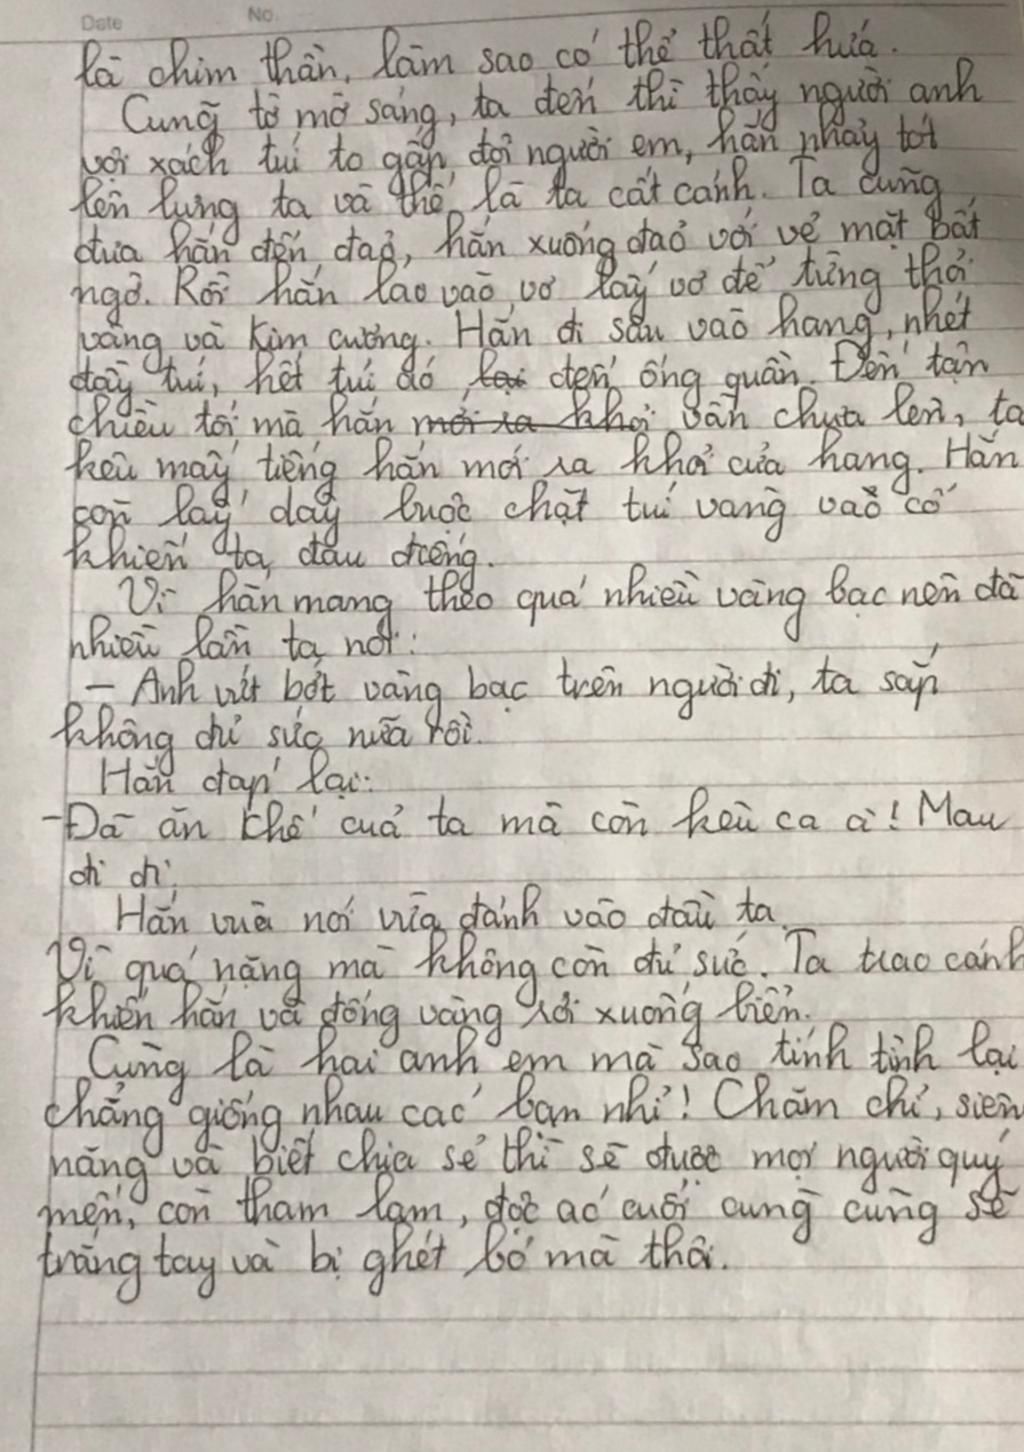 Date No.
là chim thần, làm sao có thể thất hứa.
Cũng tờ mờ sáng, ta đến thì thấy người anh
vội xách túi to gấp đôi người em, hắn nhảy tót
lên lưng ta và thế là ta cất cánh. Ta cũng
đưa hắn đến đảo, hắn xuống đảo với vẻ mặt bất
ngờ. Rồi hắn lao vào vơ lấy vơ để từng thỏi
vàng và kim cương. Hắn đi sâu vào hang, nhét
đầy túi, hết túi áo lại đến ống quần. Đến tận
chiều tối mà hắn mới ra khỏi vẫn chưa lên, ta
kêu mấy tiếng hắn mới ra khỏi cửa hang. Hắn
còn lấy dây buộc chặt túi vàng vào cổ
khiến ta đau điếng.
Vì hắn mang theo quá nhiều vàng bạc nên đã
nhiều lần ta nói:
– Anh vứt bớt vàng bạc trên người đi, ta sắp
không đủ sức nữa rồi.
Hắn đáp lại:
- Đã ăn khế của ta mà còn kêu ca à! Mau
đi đi.
Hắn vừa nói vừa đánh vào đầu ta.
Vì quá nặng mà không còn đủ sức. Ta trao cánh
khiến hắn và đống vàng rơi xuống biển.
Cùng là hai anh em mà sao tính tình lại
chẳng giống nhau các bạn nhỉ! Chăm chỉ, siên
năng và biết chia sẻ thì sẽ được mọi người quý
mến, còn tham lam, độc ác cuối cùng cũng sẽ
trắng tay và bị ghét bỏ mà thôi.